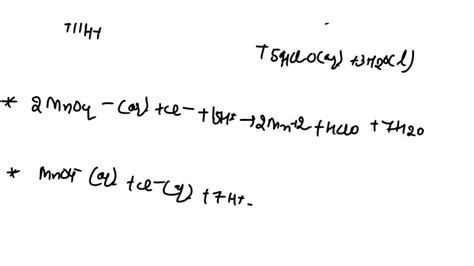 +11H+
+ 5HClO(aq) + 3H2O(l)
* 2MnO4 - (aq) + Cl- + 15H+ → 2Mn+2 + HClO + 7H2O
* MnO4- (aq) + Cl-(aq) + 7H+